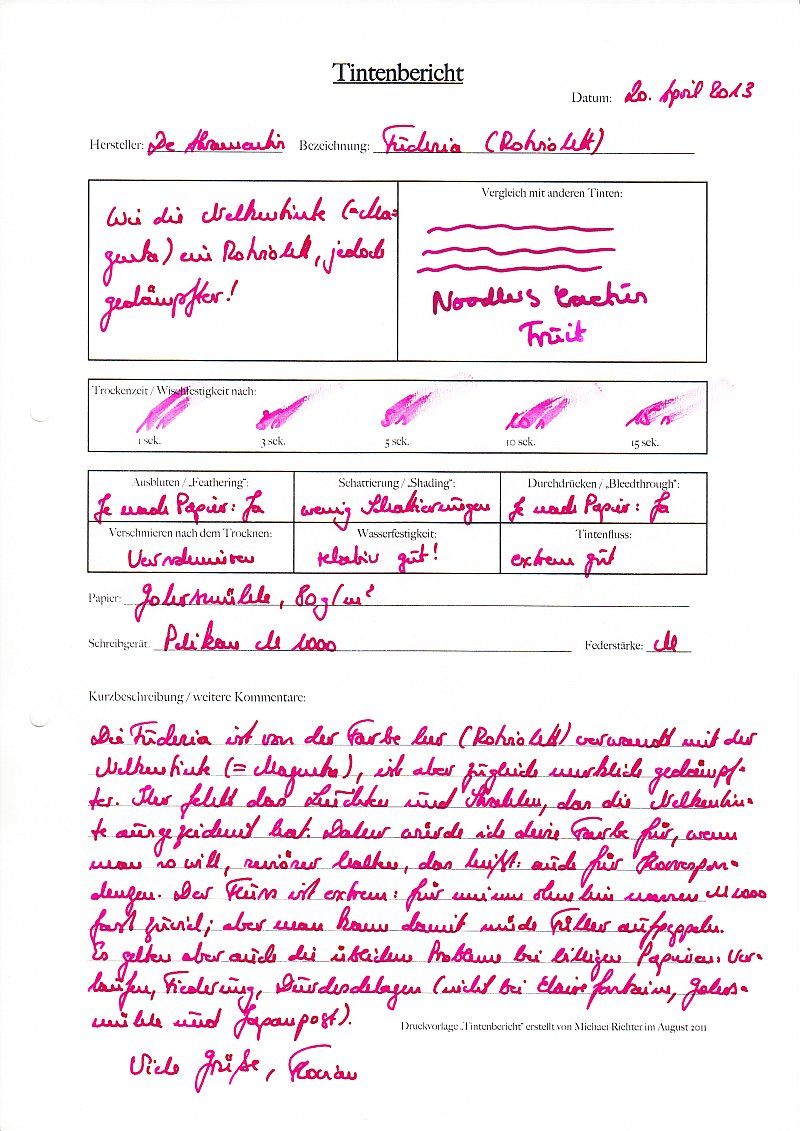 Tintenbericht
Datum: 20. April 2013
Hersteller: De Atramentis Bezeichnung: Früderia (Rotviolett)
Wie die Nelkentinte (=Ma=
genta) ein Rotviolett, jedoch
gedämpfter!
Vergleich mit anderen Tinten:
Noodlers Cactus
Fruit
Trockenzeit / Wischfestigkeit nach:
5n 10n 15n
1 sek. 3 sek. 5 sek. 10 sek. 15 sek.
Ausbluten / „Feathering": Schattierung / „Shading": Durchdrücken / „Bleedthrough":
Je nach Papier: Ja wenig Schattierungen Je nach Papier: Ja
Verschmieren nach dem Trocknen: Wasserfestigkeit: Tintenfluss:
Verschmieren relativ gut! extrem gut
Papier: Gohrsmühle, 80g/m²
Schreibgerät: Pelikan M 1000 Federstärke: M
Kurzbeschreibung / weitere Kommentare:
Die ist von der Farbe her (Rotviolett) verwandt mit der
Nelkentinte (= Magenta), ist aber zugleich merklich gedämpf-
ter. Ihr fehlt das Leuchten und Strahlen, das die Nelkentin-
te ausgezeichnet hat. Daher würde ich diese Farbe für, wenn
man so will, seriöser halten, das heißt: auch für Korrespon-
denzen. Der Fluss ist extrem: für meinen ohnehin nassen M 1000
fast zuviel; aber man kann damit müde Füller aufpeppeln.
Es gelten aber auch die üblichen Probleme bei billigen Papieren: Ver-
laufen, Fiederung, Durchschlagen (nicht bei Clairefontaine, Gohrs-
mühle und Japanpost).
Druckvorlage „Tintenbericht" erstellt von Michael Richter im August 2011
Viele Grüße, Florian